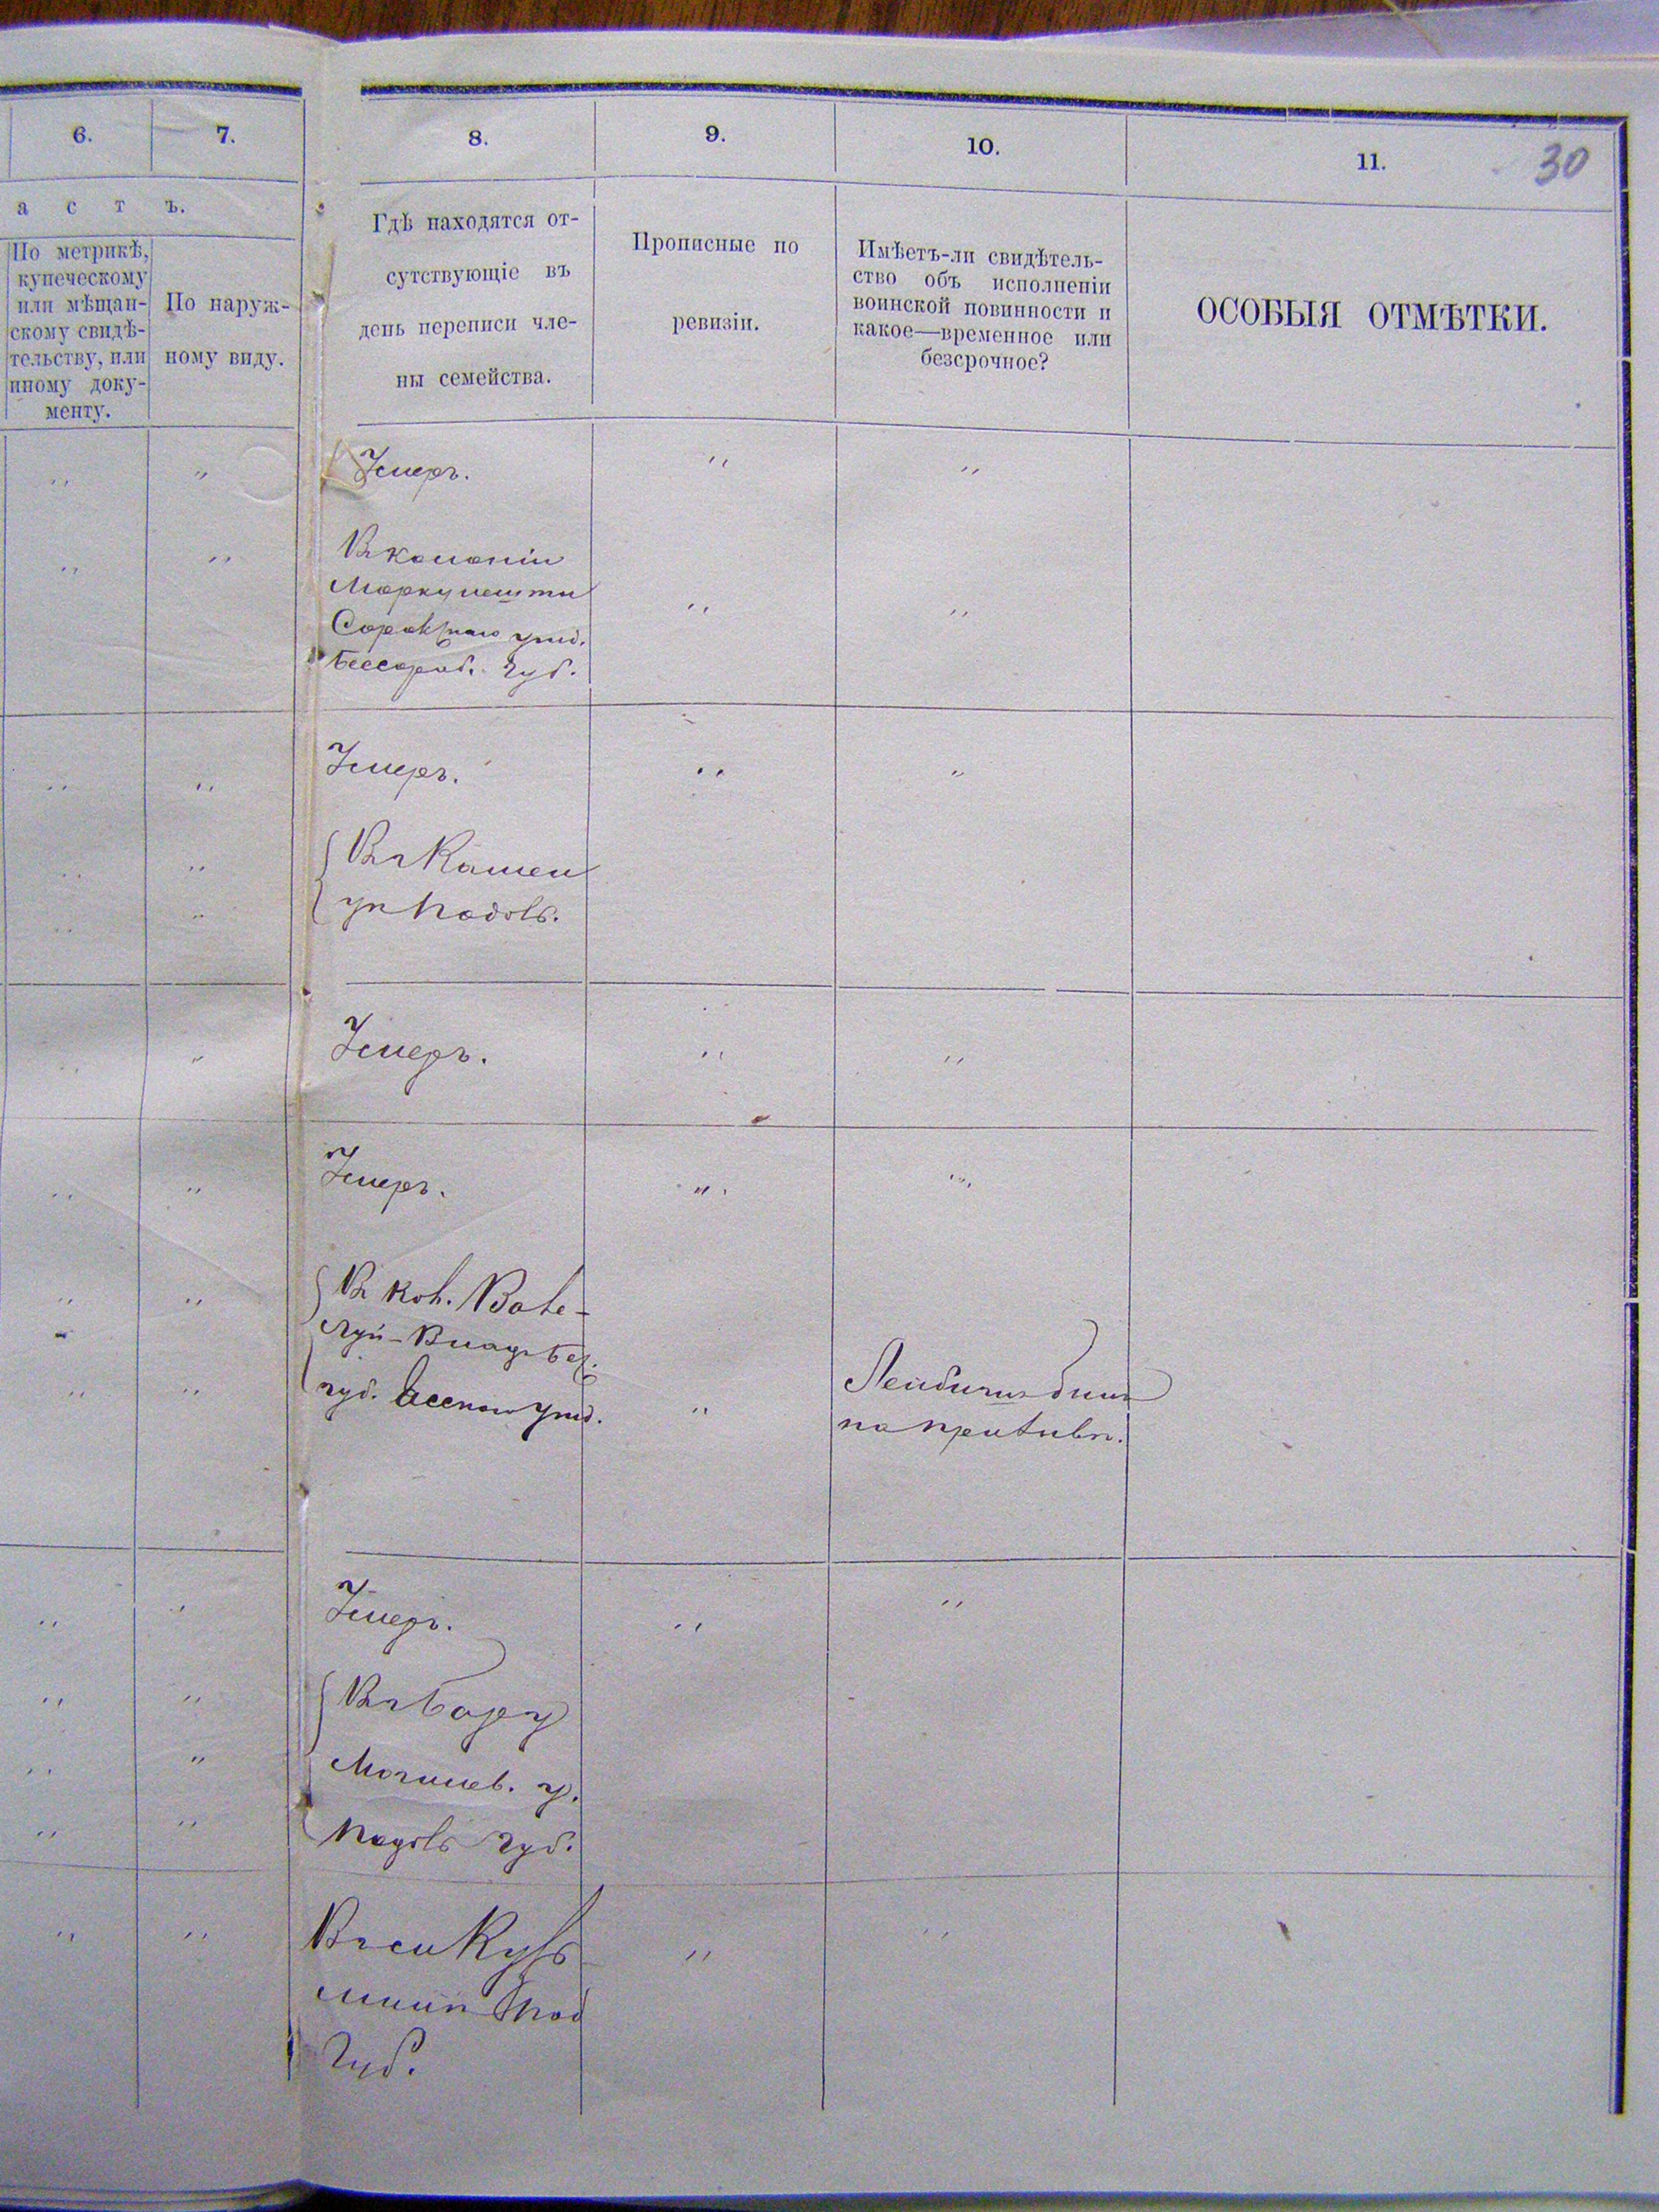 6.
7.
8.
9.
10.
11.
30
а с т ъ.
По метрикѣ,
купеческому
или мѣщан-
скому свидѣ-
тельству, или
иному доку-
менту.
По наруж-
ному виду.
Гдѣ находятся от-
сутствующіе въ
день переписи чле-
ны семейства.
Прописные по
ревизіи.
Имѣетъ-ли свидѣтель-
ство объ исполненіи
воинской повинности и
какое—временное или
безсрочное?
ОСОБЫЯ ОТМѢТКИ.
Умеръ.
Въ колоніи
Маркулешти
Сорокскаго уѣзд.
Бессараб. Губ.
Умеръ.
Въ Камен
Подольс.
Умеръ.
Умеръ.
В кол. Вале-
луй-Владъ Бес.
губ. Ясскаго уѣзд.
былъ
на призывѣ.
Умеръ.
Въ Бару
Могилев. у.
Подольс губ.
Въ с
Под
Губ.